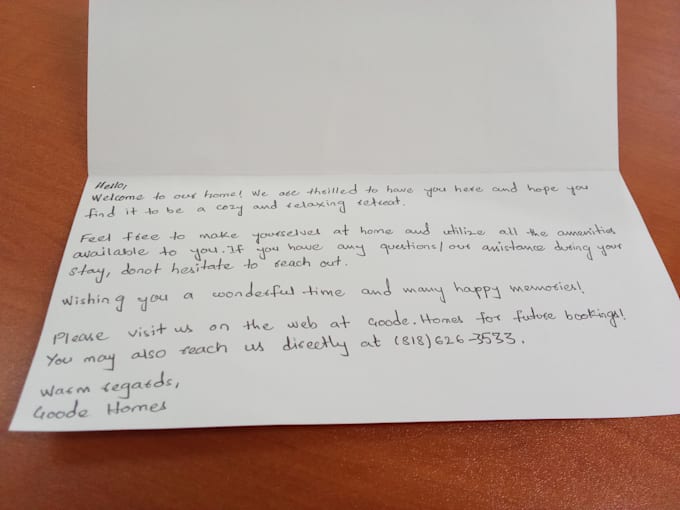 Hello,
Welcome to our home! We are thrilled to have you here and hope you
find it to be a cozy and relaxing retreat.
Feel free to make yourselves at home and utilize all the amenities
available to you. If you have any questions/our assistance during your
stay, donot hesitate to reach out.
Wishing you a wonderful time and many happy memories!
Please visit us on the web at Goode.Homes for future bookings!
You may also reach us directly at (818)626-3533.
Warm regards,
Goode Homes